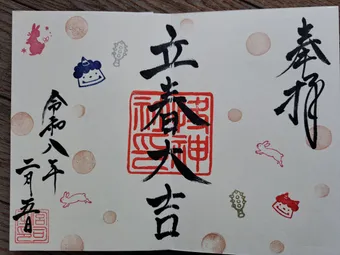 奉拝
立春大吉
令和八年
二月五日